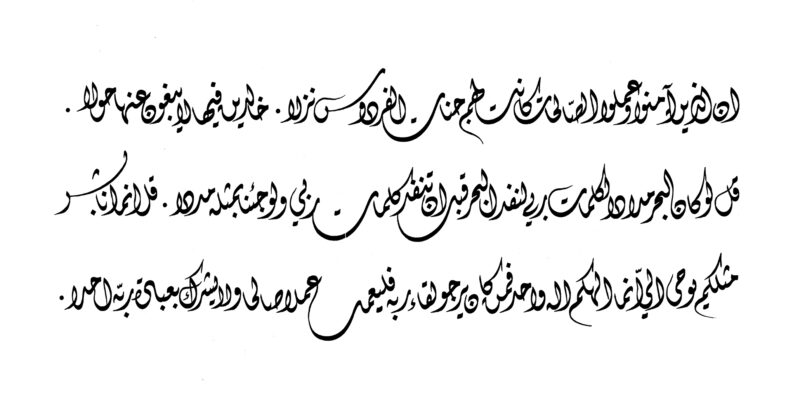 ان الذين آمنوا وعملوا الصالحات كانت لهم جنات الفردوس نزلا . خالدين فيها لا يبغون عنها حولا .
قل لو كان البحر مدادا لكلمات ربي لنفد البحر قبل ان تنفد كلمات ربي ولو جئنا بمثله مددا . قل انما انا بشر
مثلكم يوحى الي أنما الهكم اله واحد فمن كان يرجو لقاء ربه فليعمل عملا صالحا ولا يشرك بعبادة ربه احدا .